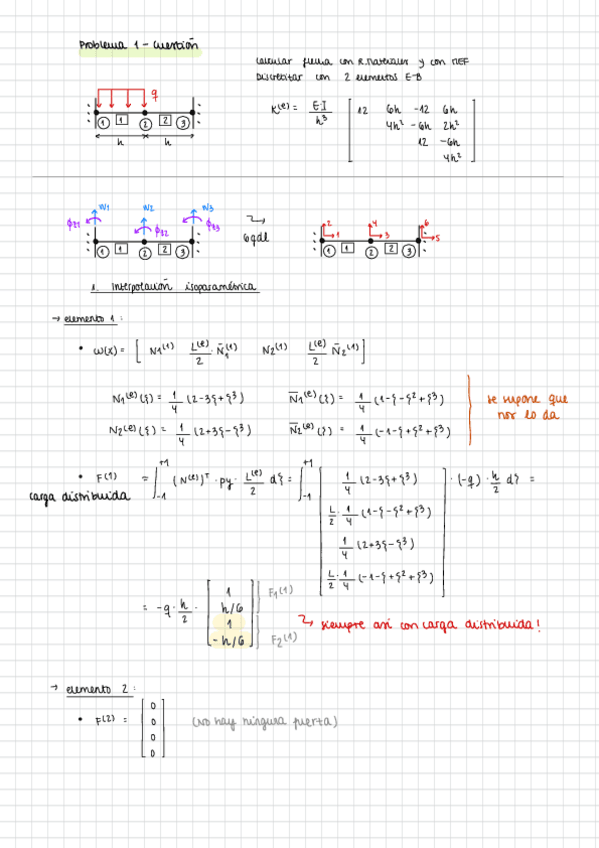 Problema 1 - Cuestión
Calcular flecha con R.Materiales y con MEF
Discretizar con 2 elementos E-B
q
K(e) = E·I / h³ [ 12 6h -12 6h
4h² -6h 2h²
12 -6h
4h² ]
1 1 2 2 3
h h
w1 w2 w3
ϕz1 ϕz2 ϕz3
6gdl
2 1 4 3 6 5
1 1 2 2 3
1. Interpolación isoparamétrica
→ elemento 1:
• w(x) = [ N1(1) L(e)/2 · N̄1(1) N2(1) L(e)/2 N̄2(1) ]
N1(e)(ξ) = 1/4 (2-3ξ+ξ³) N̄1(e)(ξ) = 1/4 (1-ξ-ξ²+ξ³)
N2(e)(ξ) = 1/4 (2+3ξ-ξ³) N̄2(e)(ξ) = 1/4 (-1-ξ+ξ²+ξ³)
se supone que
nos lo da
• F(1) = ∫₋₁⁺¹ (N(e))ᵀ · py · L(e)/2 dξ = ∫₋₁⁺¹ [ 1/4 (2-3ξ+ξ³)
carga distribuida
L/2 · 1/4 (1-ξ-ξ²+ξ³)
1/4 (2+3ξ-ξ³)
L/2 · 1/4 (-1-ξ+ξ²+ξ³) ] · (-q) · h/2 dξ =
= -q · h/2 · [ 1
h/6
1
-h/6 ]
F1(1)
F2(1)
siempre así con carga distribuida!
→ elemento 2:
• F(2) = [ 0
0
0
0 ]
(No hay ninguna fuerza)